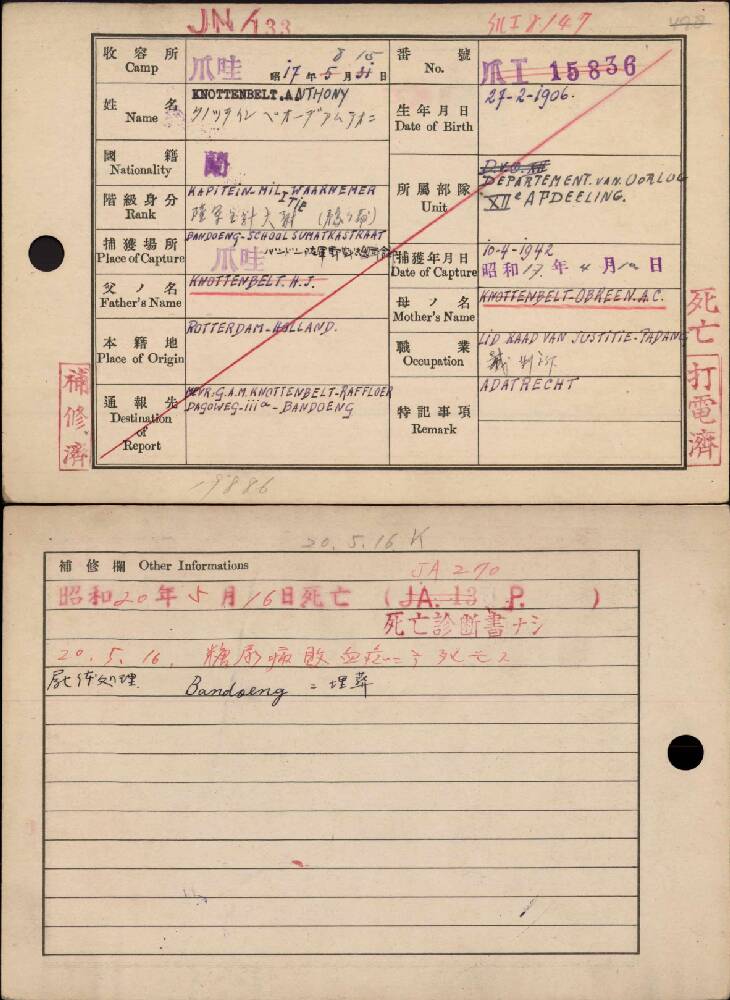 JN/133
498
收容所
Camp
爪哇
昭17年5月31日
8 15
番號
No.
爪I 15836
姓名
Name
KNOTTENBELT. ANTHONY
生年月日
Date of Birth
27-2-1906.
國籍
Nationality
蘭
所屬部隊
Unit
DEPARTEMENT. VAN. OORLOG
XIIe AFDEELING.
階級身分
Rank
KAPITEIN. MIL. WAARNEMER
TIE
捕獲場所
Place of Capture
BANDOENG-SCHOOL SUMATRASTRAAT
爪哇
捕獲年月日
Date of Capture
10-4-1942
昭和17.年4月10日
父ノ名
Father's Name
KNOTTENBELT. H.J.
母ノ名
Mother's Name
KNOTTENBELT-OBREEN. A.C.
本籍地
Place of Origin
ROTTERDAM-HOLLAND.
職業
Occupation
LID RAAD VAN JUSTITIE-PADANG
通報先
Destination
of
Report
MEVR. G.A.M. KNOTTENBELT-RAFFLOER
DAGOWEG-111a-BANDOENG
特記事項
Remark
ADATRECHT
補修濟
死亡
打電濟
19886
20.5.16 K
補修欄 Other Informations
JA 270
昭和20年5月16日死亡 (JA. 13 P. )
死亡診断書ナシ
20.5.16. 糖尿病
Bandoeng ニ埋葬